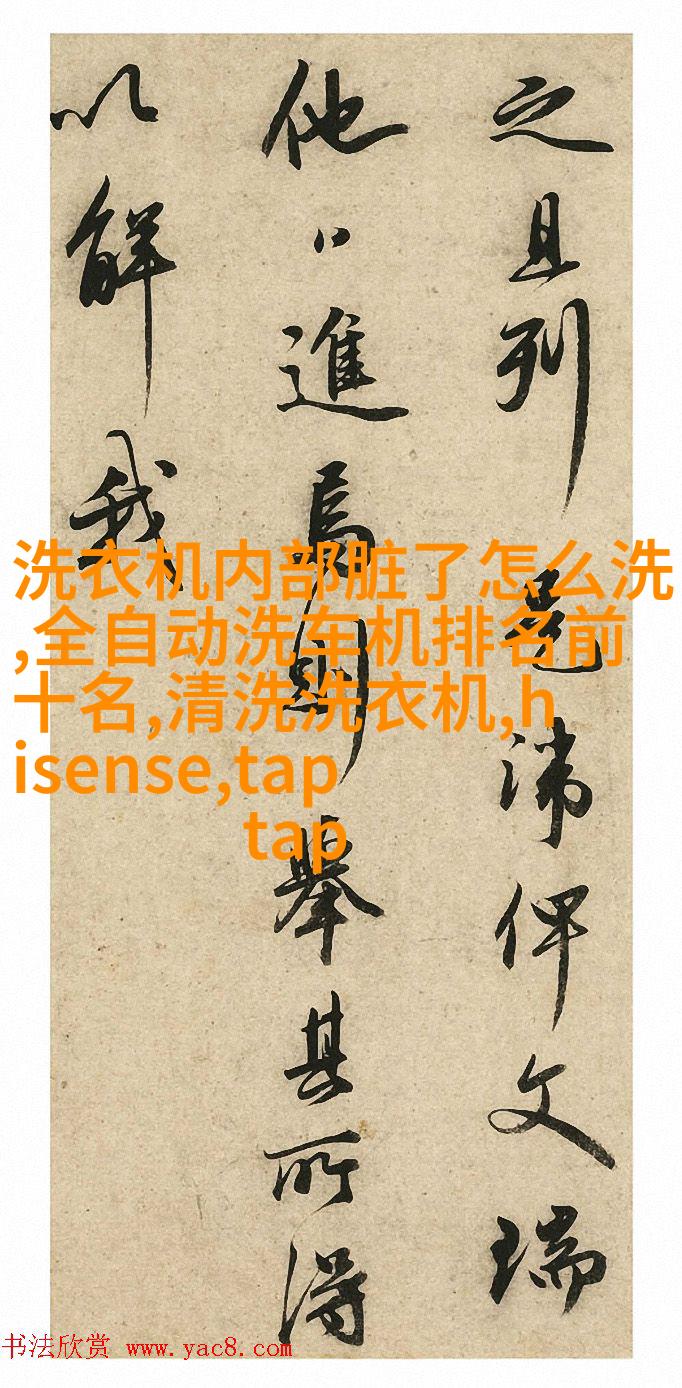 之且列
是諱俾文瑞
他日進焉則舉其所得
以解我
洗衣机内部脏了怎么洗
,全自动洗车机排名前
十名,清洗洗衣机,h
isense,tap
tap
书法欣赏 www.yac8.com